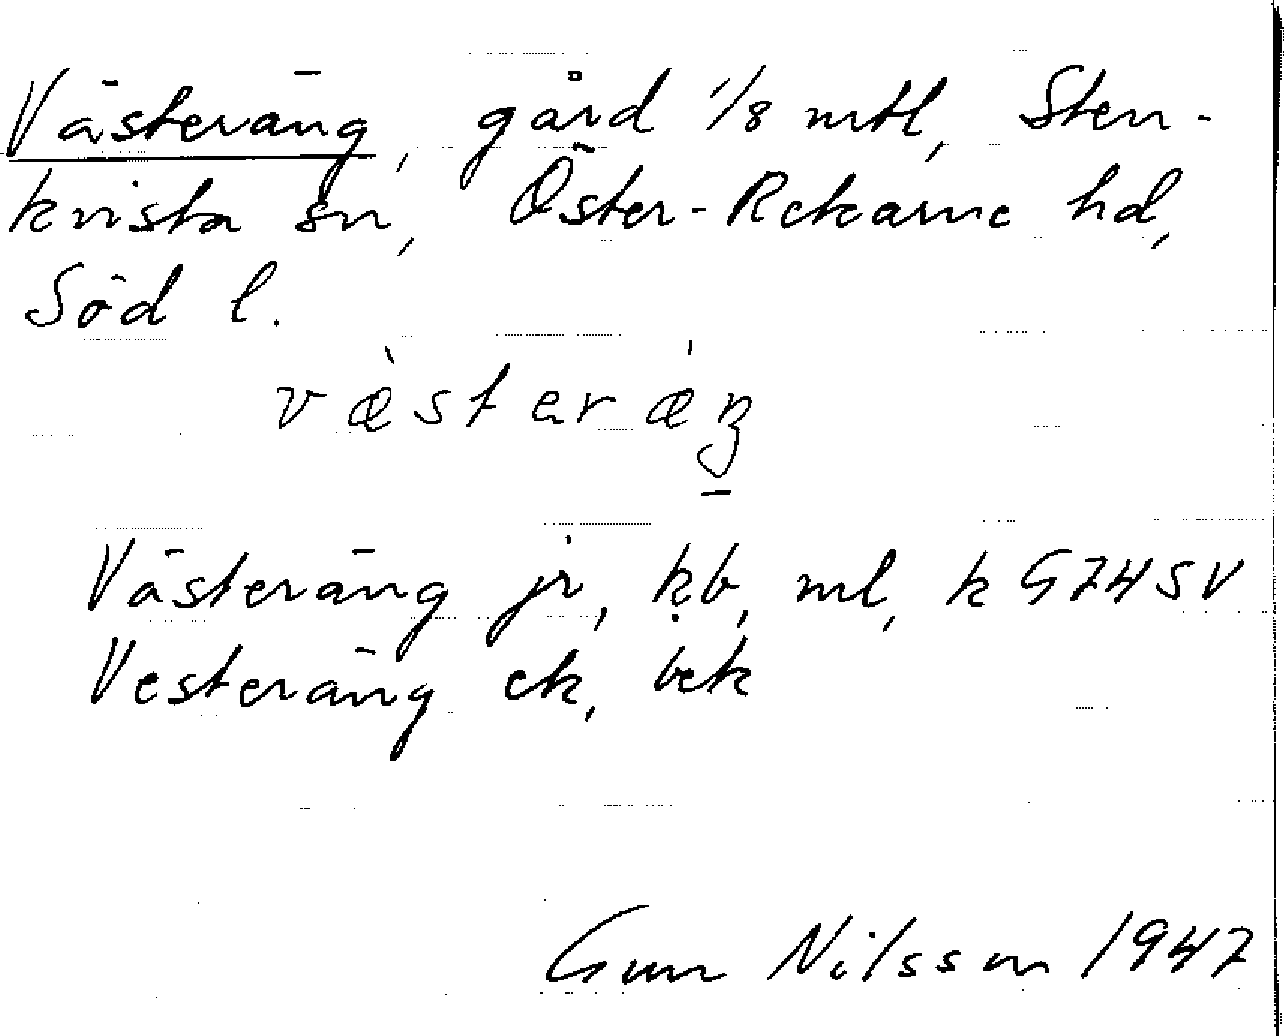 Västeräng, gård 1/8 mtl, Sten-
kvista sn, Öster-Rekarne hd,
Söd l.
væ̀steræ̀ŋ
Västeräng jr, kb, ml, k G74SV
Vesteräng ek, bek
Gun Nilsson 1947